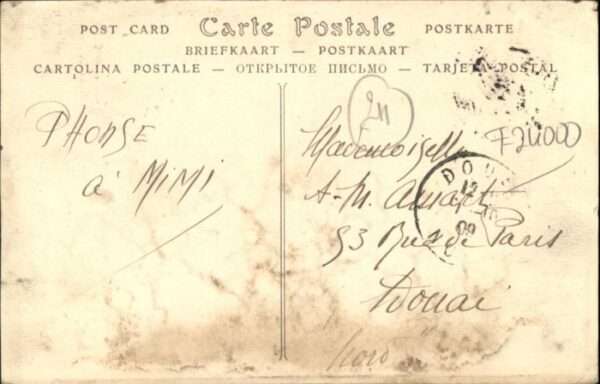 POST CARD Carte Postale POSTKARTE
BRIEFKAART — POSTKAART
CARTOLINA POSTALE — ОТКРЫТОЕ ПИСЬМО — TARJETA POSTAL
PHONSE
à MIMI
Mademoiselle
A-M.
53 Rue de Paris
Douai
Nord
DOU
12
09